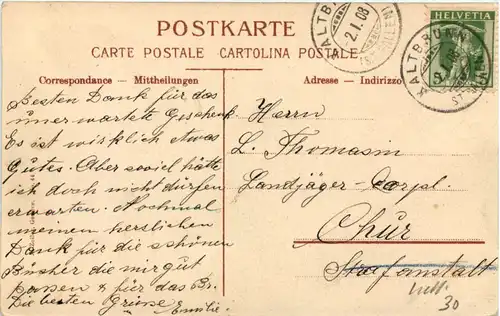 POSTKARTE
CARTE POSTALE CARTOLINA POSTALE
Correspondance – Mittheilungen
Adresse – Indirizzo
KALTBRUNN
-2.I.08
(ST. GALLEN)
HELVETIA
KALTBRUNN
Besten Dank für das
unerwartete Geschenk
Es ist wirklich etwas
Gutes. Aber soviel hätte
ich doch nicht dürfen
erwarten. Nochmal
meinen herzlichen
Dank für die schönen
Bücher die mir gut
passen & für das Bs.
Die besten Grüsse Emilie.
Herrn
L. Thomasin
Landjäger-Corpl.
Chur
Strafanstalt
30